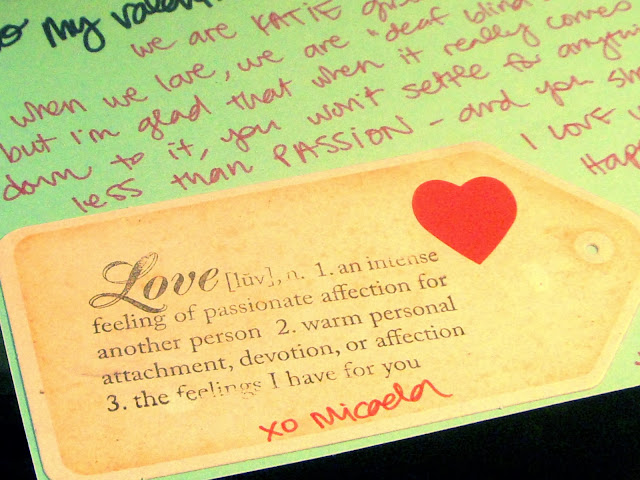 My
we are KATIE
when we love, we are "deaf blind
but i'm glad that when it really comes
down to it, you won't settle for
less than PASSION - and you
I LOVE
Love [lŭv], n. 1. an intense
feeling of passionate affection for
another person 2. warm personal
attachment, devotion, or affection
3. the feelings I have for you
xo Micaela